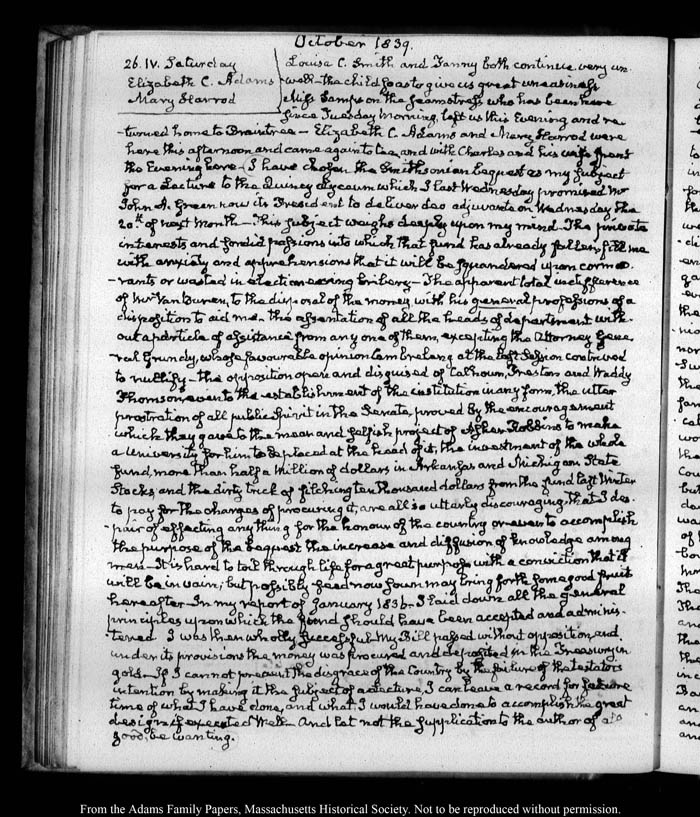 October 1839.
26. IV. Saturday
Elizabeth C. Adams
Mary Harrod
Louisa C. Smith and Fanny both continue very un-
-well—the child so as to give us great uneasiness
Miss Sampson the seamstress who has been here
since Tuesday morning, left us this Evening and re-
-turned home to Braintree — Elizabeth C. Adams and Mary Harrod were
here this afternoon and came again to tea, and with Charles and his wife spent
the Evening here — I have chosen the Smithsonian bequest as my subject
for a Lecture to the Quincy Lyceum which I last Wednesday promised Mr
John A. Green now its President to deliver deo adjuvante on Wednesday, the
20th of next Month—This subject weighs deeply upon my mind. The private
interests and sordid passions into which that fund has already fallen, fill me
with anxiety and apprehensions that it will be squandered upon cormo-
-rants or wasted in electioneering bribery—The apparent total indifference
of Mr Van Buren, to the disposal of the money, with his general professions of a
disposition to aid me. the assentation of all the heads of department with-
out a particle of assistance from any one of them, excepting the Attorney Gene-
ral Grundy, whose favourable opinion Lambrelang at the last Session contrived
to nullify—the opposition open and disguised of Calhoun, Preston and Waddy
Thomson, even to the establishment of the institution in any form, the utter
prostration of all public Spirit in the Senate, proved by the encouragement
which they gave to the mean and selfish project of Asher Robbins to make
a University for him to be placed at the head of it, the investment of the whole
fund, more than half a Million of dollars in Arkansas and Michigan State
Stocks, and the dirty trick of filching ten thousand dollars from the fund last Winter
to pay for the charges of procuring it, are all so utterly discouraging, that I des-
-pair of effecting any thing for the honour of the country or even to accomplish
the purpose of the bequest the increase and diffusion of knowledge among
men—It is hard to toil through life for a great purpose with a conviction that it
will be in vain; but possibly seed now sown may bring forth some good fruit
hereafter—In my report of January 1836. I laid down all the general
principles upon which the fund should have been accepted and adminis-
tered I was then wholly successful—My Bill passed without opposition, and
under its provisions the money was procured and deposited in the Treasury in
gold—If I cannot prevent the disgrace of the Country by the failure of the testators
intention by making it the subject of a Lecture, I can leave a record for future
time of what I have done, and what I would have done to accomplish the great
design if executed Well—And let not the supplication to the author of all
good, be wanting.
From the Adams Family Papers, Massachusetts Historical Society. Not to be reproduced without permission.